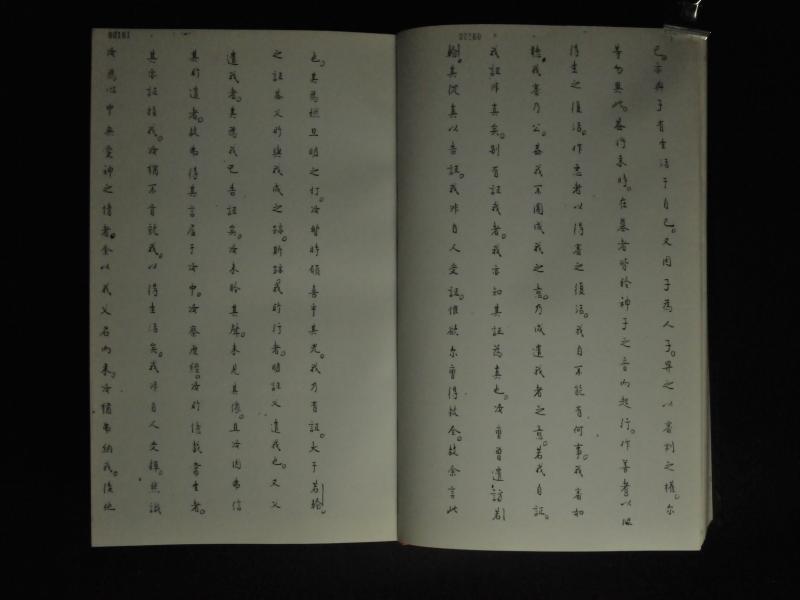 00160
已。亦與子有生活于自己。又因子為人子。畀之以審判之權。尔
等勿異此。葢行来時。在墓者皆聆神子之音而起行。作善者以
得生之復活。作惡者以得審之復活。我自不能有何事。我審如
聽。我審乃公。葢我不圖成我之意。乃成遣我者之意。若我自証。
我証非真矣。别有証我者。我亦知其証為真也。汝曹曾遣訪若
翰。其從真以告証。我非自人受証。惟欲尔曹得救。故余言此
00161
也。其為燃且明之灯。汝暫時傾喜乎其光。我乃有証大于若翰
之証葢父所與我成之跡。斯跡我所行者。明証父遣我也。又父
遣我者。其為我已告証矣。汝未聆其聲。未見其像。且汝因弗信
其所遣者。故弗得其言居于汝中。汝察度經。汝所信載常生者。
其亦証指我。汝猶不肯就我。以得生活矣。我非自人受榮。然識
汝為心中無愛神之情者。余以我父名而来。汝猶弗納我。後他